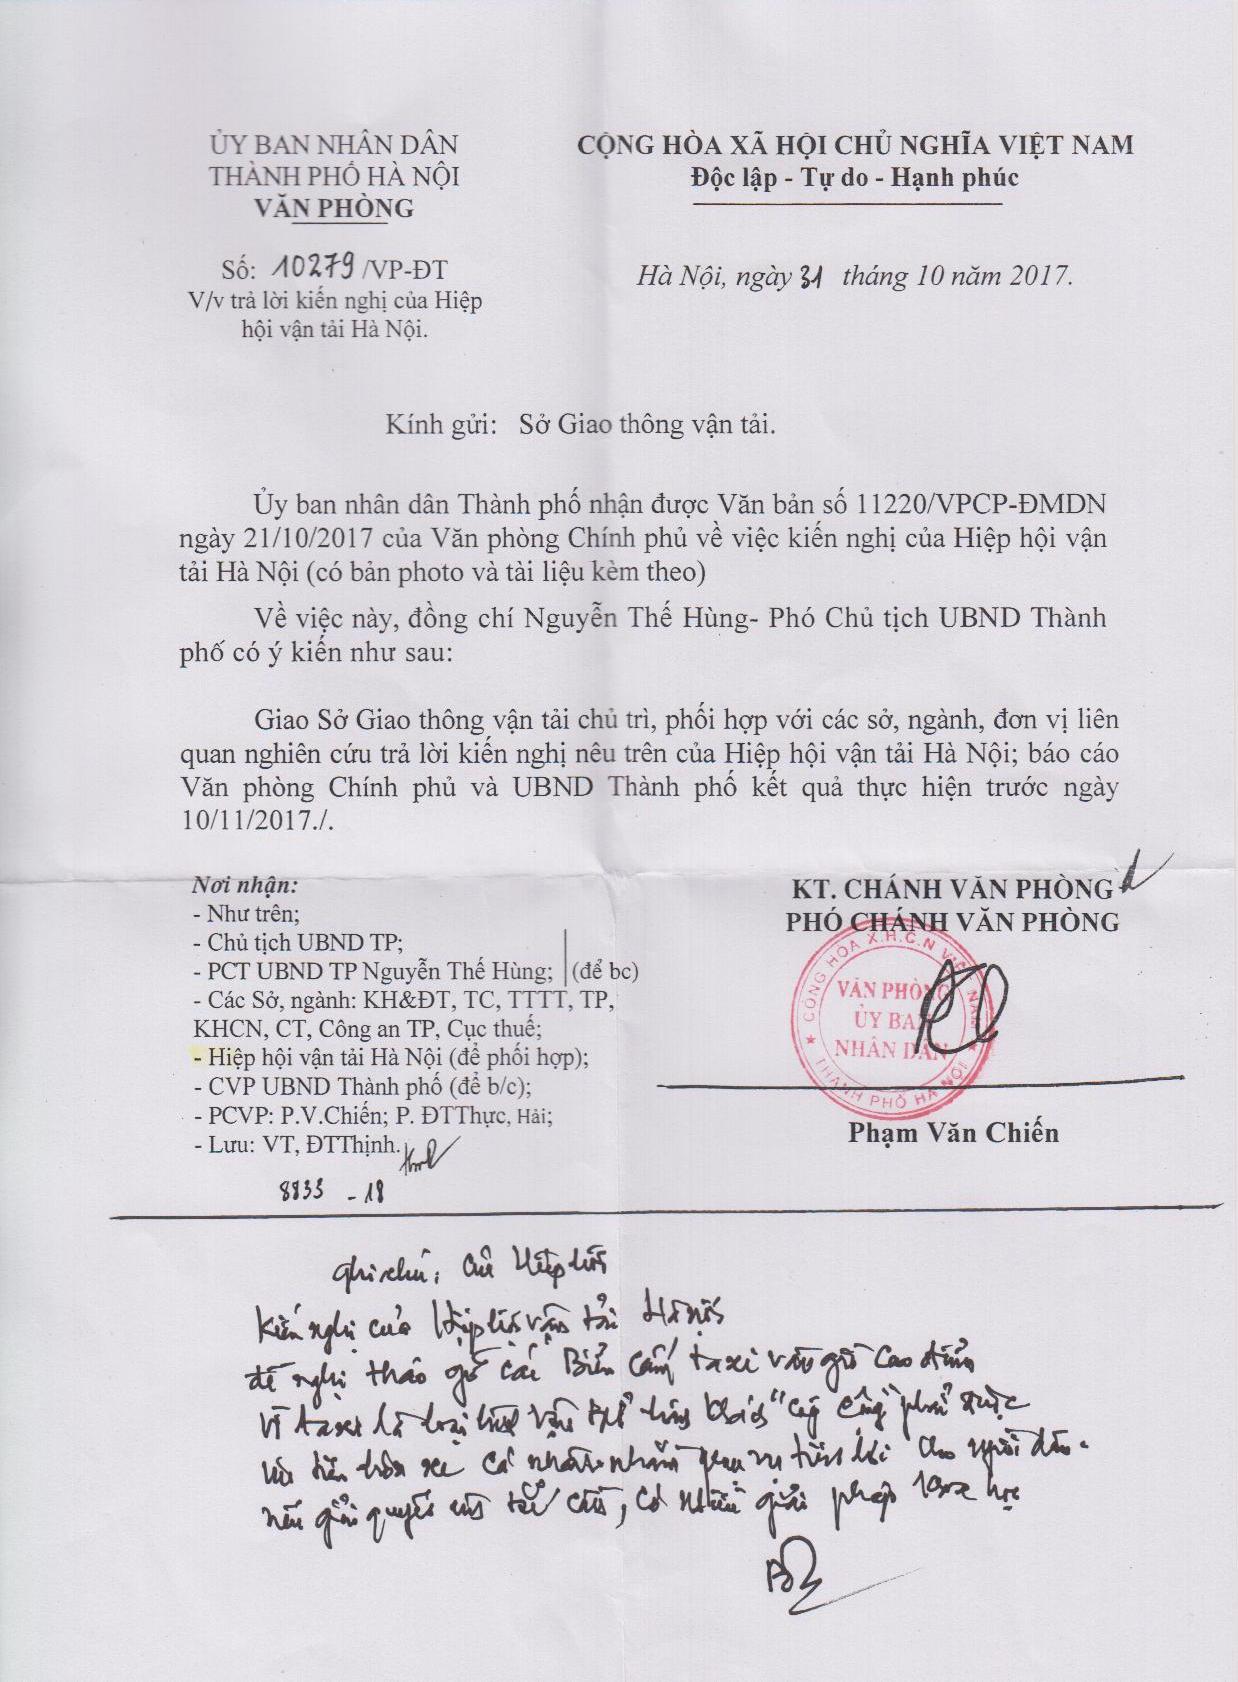 ỦY BAN NHÂN DÂN
THÀNH PHỐ HÀ NỘI
VĂN PHÒNG
CỘNG HÒA XÃ HỘI CHỦ NGHĨA VIỆT NAM
Độc lập - Tự do - Hạnh phúc
Số: 10279 /VP-ĐT
V/v trả lời kiến nghị của Hiệp
hội vận tải Hà Nội.
Hà Nội, ngày 31 tháng 10 năm 2017.
Kính gửi: Sở Giao thông vận tải.
Ủy ban nhân dân Thành phố nhận được Văn bản số 11220/VPCP-ĐMDN
ngày 21/10/2017 của Văn phòng Chính phủ về việc kiến nghị của Hiệp hội vận
tải Hà Nội (có bản photo và tài liệu kèm theo)
Về việc này, đồng chí Nguyễn Thế Hùng- Phó Chủ tịch UBND Thành
phố có ý kiến như sau:
Giao Sở Giao thông vận tải chủ trì, phối hợp với các sở, ngành, đơn vị liên
quan nghiên cứu trả lời kiến nghị nêu trên của Hiệp hội vận tải Hà Nội; báo cáo
Văn phòng Chính phủ và UBND Thành phố kết quả thực hiện trước ngày
10/11/2017./.
Nơi nhận:
- Như trên;
- Chủ tịch UBND TP;
- PCT UBND TP Nguyễn Thế Hùng; (để bc)
- Các Sở, ngành: KH&ĐT, TC, TTTT, TP,
KHCN, CT, Công an TP, Cục thuế;
- Hiệp hội vận tải Hà Nội (để phối hợp);
- CVP UBND Thành phố (để b/c);
- PCVP: P.V.Chiến; P. ĐTThực, Hải;
- Lưu: VT, ĐTThịnh.
8833 - 18
KT. CHÁNH VĂN PHÒNG
PHÓ CHÁNH VĂN PHÒNG
CỘNG HÒA X.H.C.N VIỆT NAM
VĂN PHÒNG
ỦY BAN
NHÂN DÂN
THÀNH PHỐ HÀ NỘI
Phạm Văn Chiến
Ghi chú: Của Hiệp hội
Kiến nghị của Hiệp hội vận tải Hà Nội
đề nghị tháo gỡ các Biển cấm taxi vào giờ cao điểm
vì taxi là loại hình vận tải hành khách "công cộng" phải được
ưu tiên hơn xe cá nhân nhằm phục vụ cho người dân.
nếu giải quyết ùn tắc cần, có nhiều giải pháp khoa học